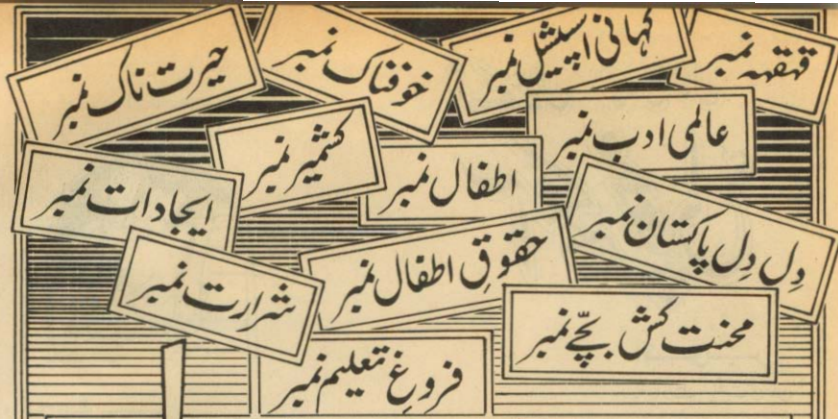 قہقہہ نمبر
کہانی اسپیشل نمبر
خوفناک نمبر
حیرت ناک نمبر
عالمی ادب نمبر
کشمیر نمبر
اطفال نمبر
ایجادات نمبر
دِل دِل پاکستان نمبر
حقوقِ اطفال نمبر
شرارت نمبر
محنت کش بچّے نمبر
فروغِ تعلیم نمبر